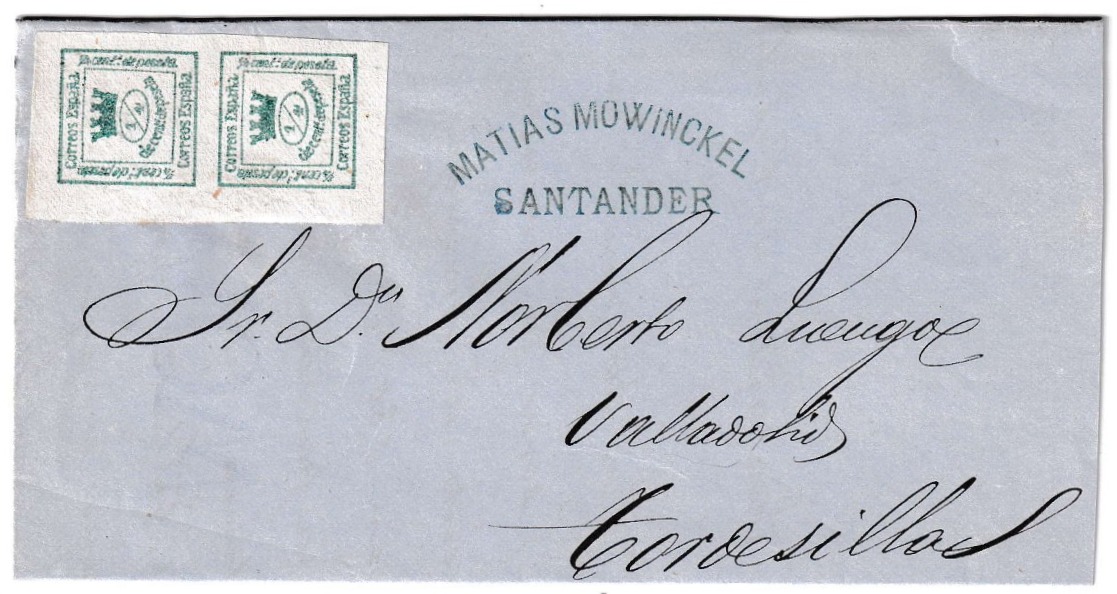 ¼ cent.º de peseta.
Correos España
¼ cent.º de peseta
Correos España
de cent. de peseta
¼ cent.º de peseta.
Correos España
¼ cent.º de peseta
Correos España
de cent. de peseta
MATIAS MOWINCKEL
SANTANDER
Sr. Dn Norberto Luengo
Valladolid
Tordesillas